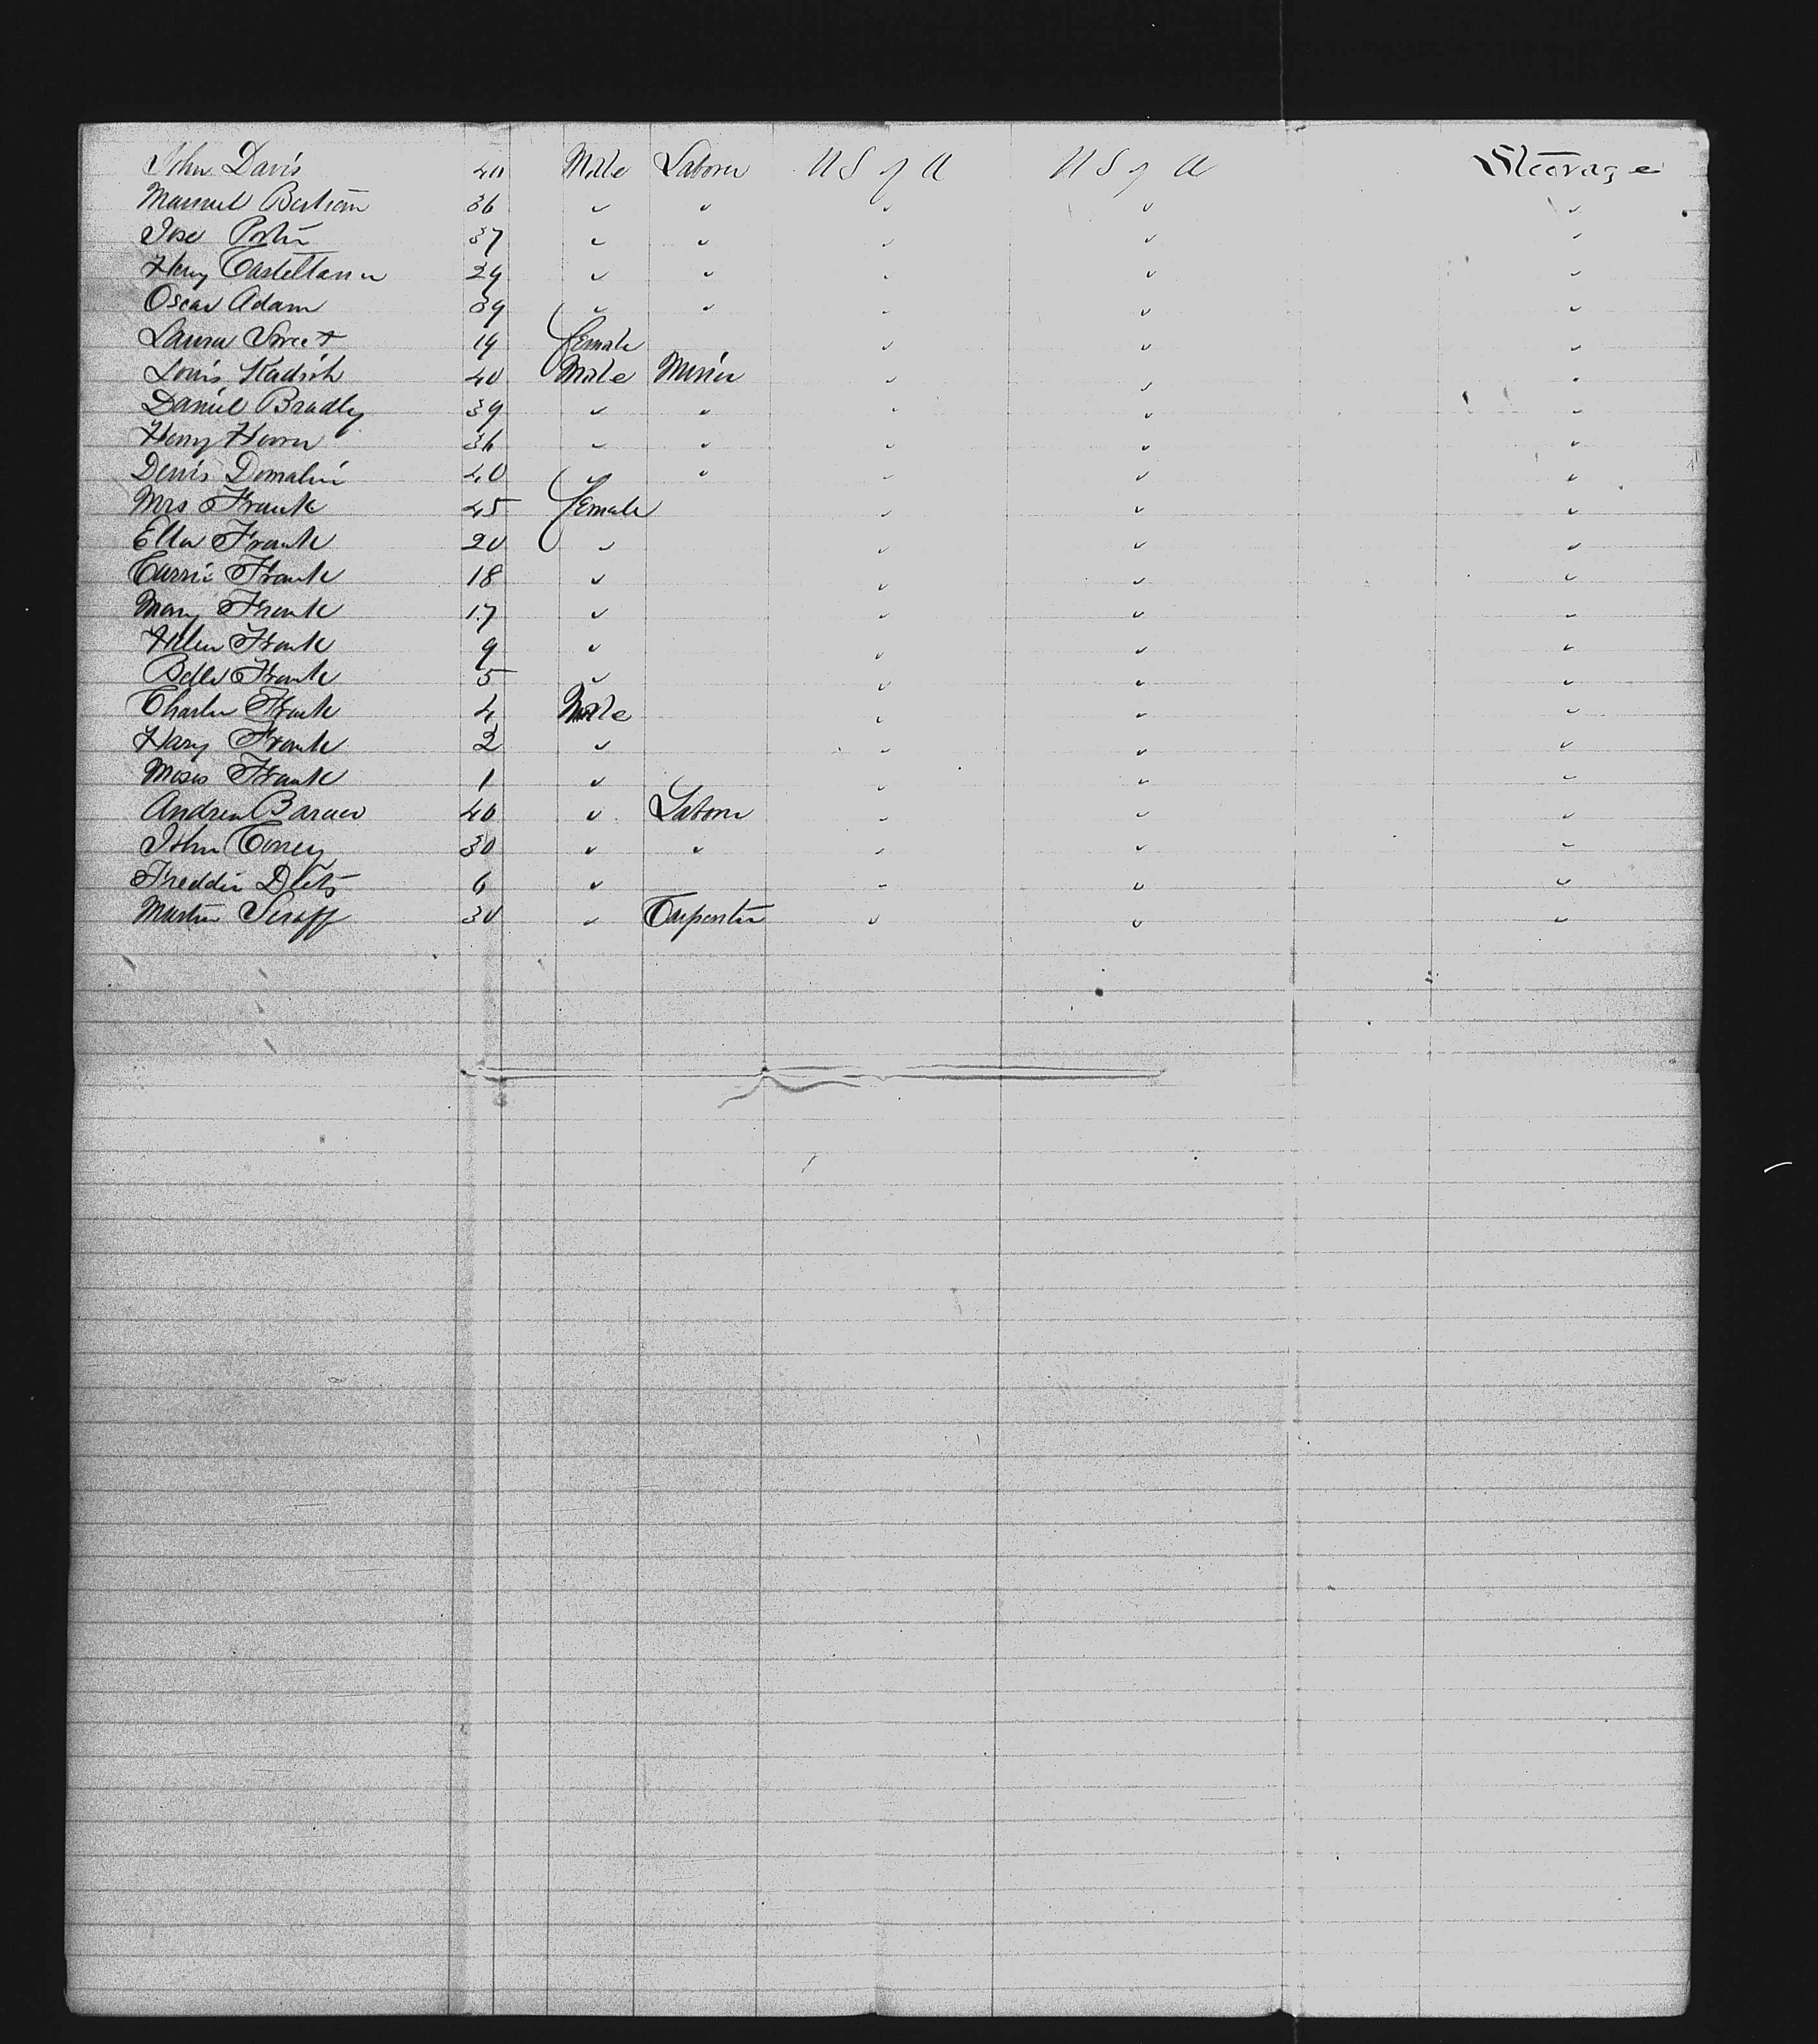 John Davis 40 Male Laborer U S of A U S of A Steerage
Manuel Bertram 36 " " " " "
Jose 37 " " " " "
Henry Castellanu 29 " " " " "
Oscar Adam 39 " " " " "
Laura Street 19 Female " " "
Louis 40 Male Miner " " "
Daniel Bradley 39 " " " " "
Henry 36 " " " " "
Denis 40 " " " " "
Mrs Frank 45 Female " " "
Ella Frank 20 " " " "
Carrie Frank 18 " " " "
Mary Frank 17 " " " "
Helen Frank 9 " " " "
Bella Frank 5 " " " "
Charles Frank 4 Male " " "
Harry Frank 2 " " " "
Moses Frank 1 " " " "
Andrew 40 " Laborer " " "
John Coney 30 " " " " "
Freddie 6 " " " "
Martin 30 " Carpenter " " "